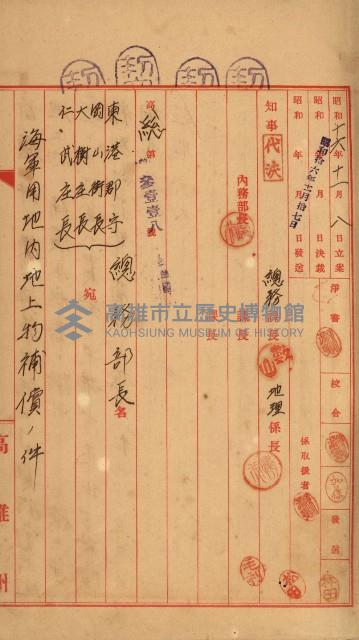 契 契 契 契
昭和十六年十一月八日立案
昭和　年　月　日決裁
昭和　年　月　日發送
昭和拾六年十一月拾七日
淨書
校合
發送
知事 代決
內務部長
總務課長
課長
課長
地理係長
係取扱者
高總第參壹壹八號
東港郡守
岡山街長
大樹庄長
仁武庄長
宛
總務部長名
海軍用地內地上物補償ノ件
高雄州
高雄市立歷史博物館
KAOHSIUNG MUSEUM OF HISTORY